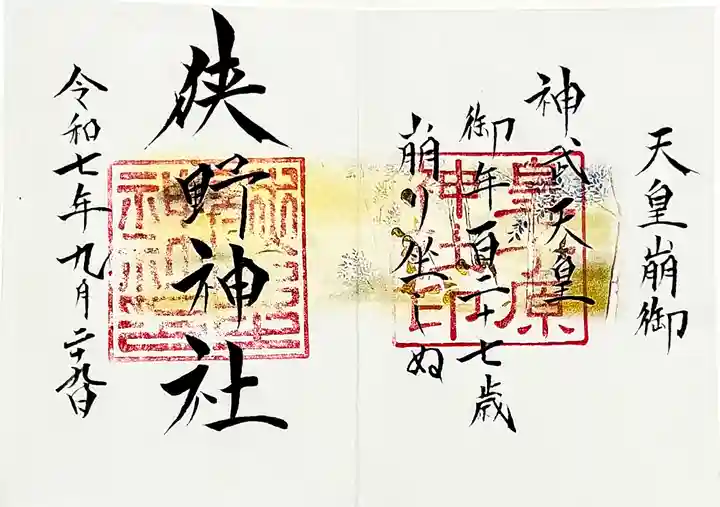 天皇崩御
神武天皇
御年百二十七歳
崩り坐しぬ
狭野神社
令和七年九月二十九日
皇原
神社印